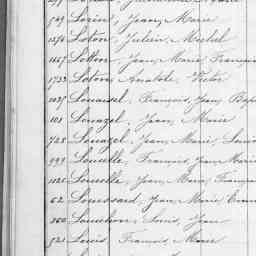 749 Lorin, Jean, Marie
1576 Loton, Julien, Michel
1667 Lotton, Jean, Marie, François
1733 Loton Anatole, Victor
1037 Louaisel, François, Jean
101 Louazel, Jean, Marie
728 Louazel, Jean, Marie, Louis
999 Louelle, François, Jean, Marie
1026 Louelle, Jean, Marie,
62 Loussard, Jean, Marie
360 Louichon, Louis, Jean
521 Louis François, Marie